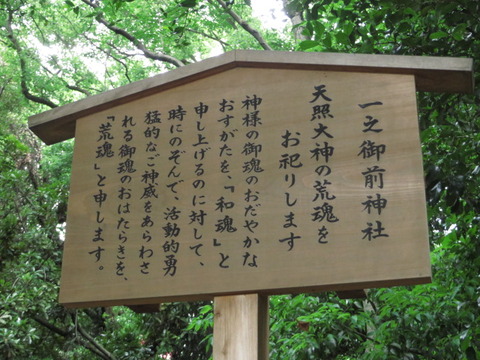 一之御前神社
天照大神の荒魂を
お祀りします
神様の御魂のおだやかな
おすがたを、『和魂』と
申し上げるのに対して、
時にのぞんで、活動的勇
猛的なご神威をあらわさ
れる御魂のおはたらきを、
『荒魂』と申します。